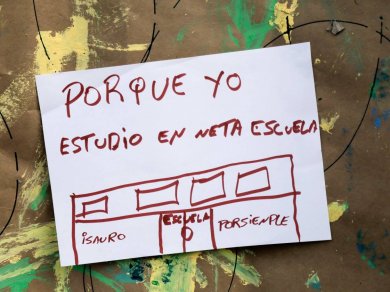 PORQUE YO
ESTUDIO EN NETA ESCUELA
ESCUELA
iSAURO
PORSIEMPLE